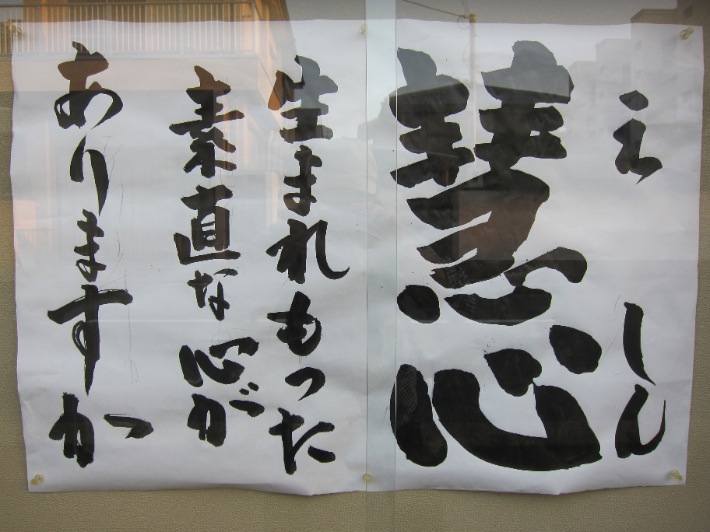 えしん
慧心
生まれもった
素直な心が
ありますか